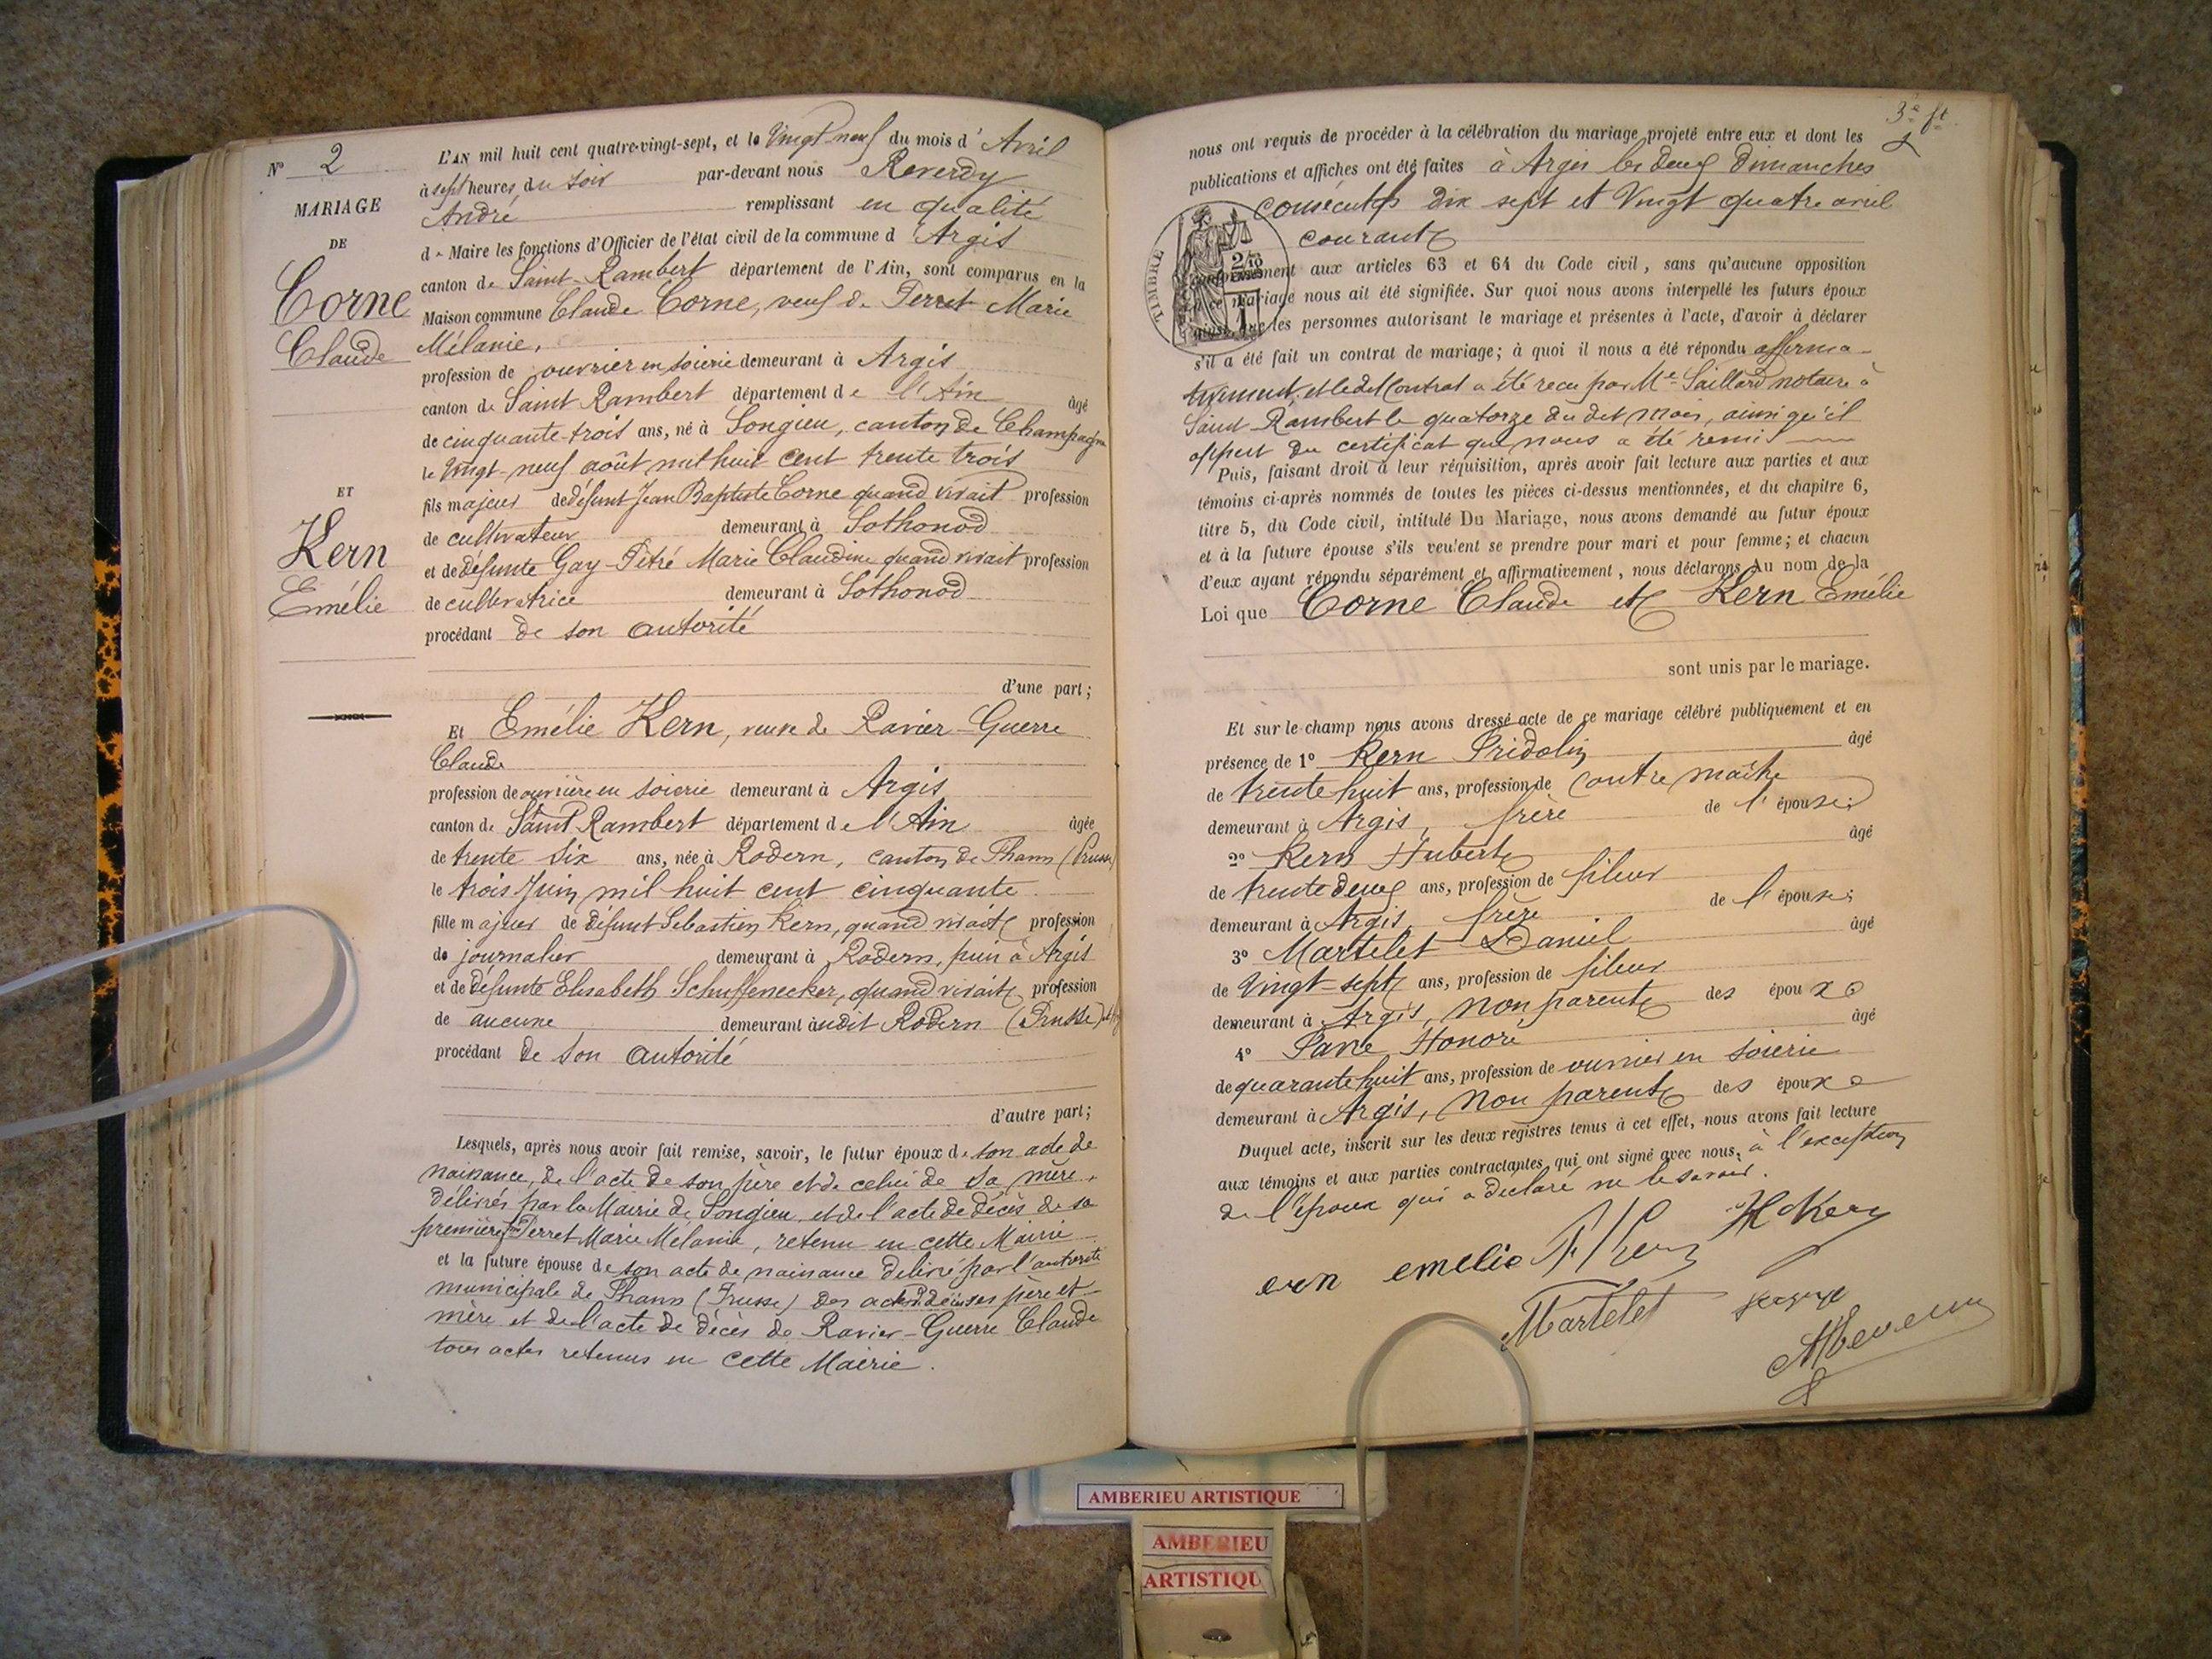 N° 2
MARIAGE
DE
Corne
Claude
ET
Kern
Emélie
L'AN mil huit cent quatre-vingt-sept, et le Vingt-neuf du mois d' Avril
à sept heures du soir par-devant nous Reverdy
André remplissant en qualité
de Maire les fonctions d'Officier de l'état civil de la commune d Argis
canton de Saint-Rambert département de l'Ain, sont comparus en la
Maison commune Claude Corne, veuf de Perret Marie
Mélanie,
profession de ouvrier en soierie demeurant à Argis
canton de Saint Rambert département de l'Ain âgé
de cinquante-trois ans, né à Songieu, canton de Champagne
le Vingt-neuf août mil huit cent trente trois
fils majeur de défunt Jean Baptiste Corne quand vivait profession
de cultivateur demeurant à Sothonod
et de défunte Gay-Pétré Marie Claudine quand vivait profession
de cultivatrice demeurant à Sothonod
procédant de son autorité
d'une part;
Et Emélie Kern, veuve de Ravier-Guerre
Claude
profession de ouvrière en soierie demeurant à Argis
canton de Saint Rambert département de l'Ain âgée
de trente six ans, née à Rodern, canton de Thann (Prusse)
le trois Juin mil huit cent cinquante
fille majeur de défunt Sébastien Kern, quand vivait profession
de journalier demeurant à Rodern, puis à Argis
et de défunte Elisabeth Schuffenecker, quand vivait profession
de aucune demeurant àudit Rodern (Prusse)
procédant de son autorité
d'autre part;
Lesquels, après nous avoir fait remise, savoir, le futur époux de son acte de
naissance, de l'acte de son père et de celui de sa mère,
délivrés par la Mairie de Songieu, et de l'acte de décès de sa
première fme Perret Marie Mélanie, retenu en cette Mairie
et la future épouse de son acte de naissance délivré par l'autorité
municipale de Thann (Prusse) des actes de décès ses père et
mère et de l'acte de décès de Ravier-Guerre Claude
tous actes retenus en cette Mairie.
3e ft
nous ont requis de procéder à la célébration du mariage projeté entre eux et dont les
publications et affiches ont été faites à Argis les deux dimanches
consécutifs dix sept et Vingt quatre avril
courant
TIMBRE
conformément aux articles 63 et 64 du Code civil, sans qu'aucune opposition
à ce mariage nous ait été signifiée. Sur quoi nous avons interpellé les futurs époux
ainsi que les personnes autorisant le mariage et présentes à l'acte, d'avoir à déclarer
s'il a été fait un contrat de mariage; à quoi il nous a été répondu affirma-
tivement, et ledit Contrat a été reçu par Me Saillard notaire à
Saint Rambert le quatorze du dit mois, ainsi qu'il
appert du certificat qui nous a été remis
Puis, faisant droit à leur réquisition, après avoir fait lecture aux parties et aux
témoins ci-après nommés de toutes les pièces ci-dessus mentionnées, et du chapitre 6,
titre 5, du Code civil, intitulé Du Mariage, nous avons demandé au futur époux
et à la future épouse s'ils veulent se prendre pour mari et pour femme; et chacun
d'eux ayant répondu séparément et affirmativement, nous déclarons Au nom de la
Loi que Corne Claude et Kern Emélie
sont unis par le mariage.
Et sur-le-champ nous avons dressé acte de ce mariage célébré publiquement et en
présence de 1° Kern Fridolin âgé
de trente huit ans, profession de Contre maître
demeurant à Argis, frère de l'épouse;
2° Kern Hubert âgé
de trente deux ans, profession de fileur
demeurant à Argis, frère de l'épouse;
3° Martelet Daniel âgé
de Vingt-sept ans, profession de fileur
demeurant à Argis, non parent des époux
4° Honoré âgé
de quarante huit ans, profession de ouvrier en soierie
demeurant à Argis, Non parent des époux
Duquel acte, inscrit sur les deux registres tenus à cet effet, nous avons fait lecture
aux témoins et aux parties contractantes qui ont signé avec nous, à l'exception
de l'époux qui a déclaré ne le savoir.
emelie
H Kern
Martelet
AMBERIEU ARTISTIQUE
AMBERIEU
ARTISTIQU